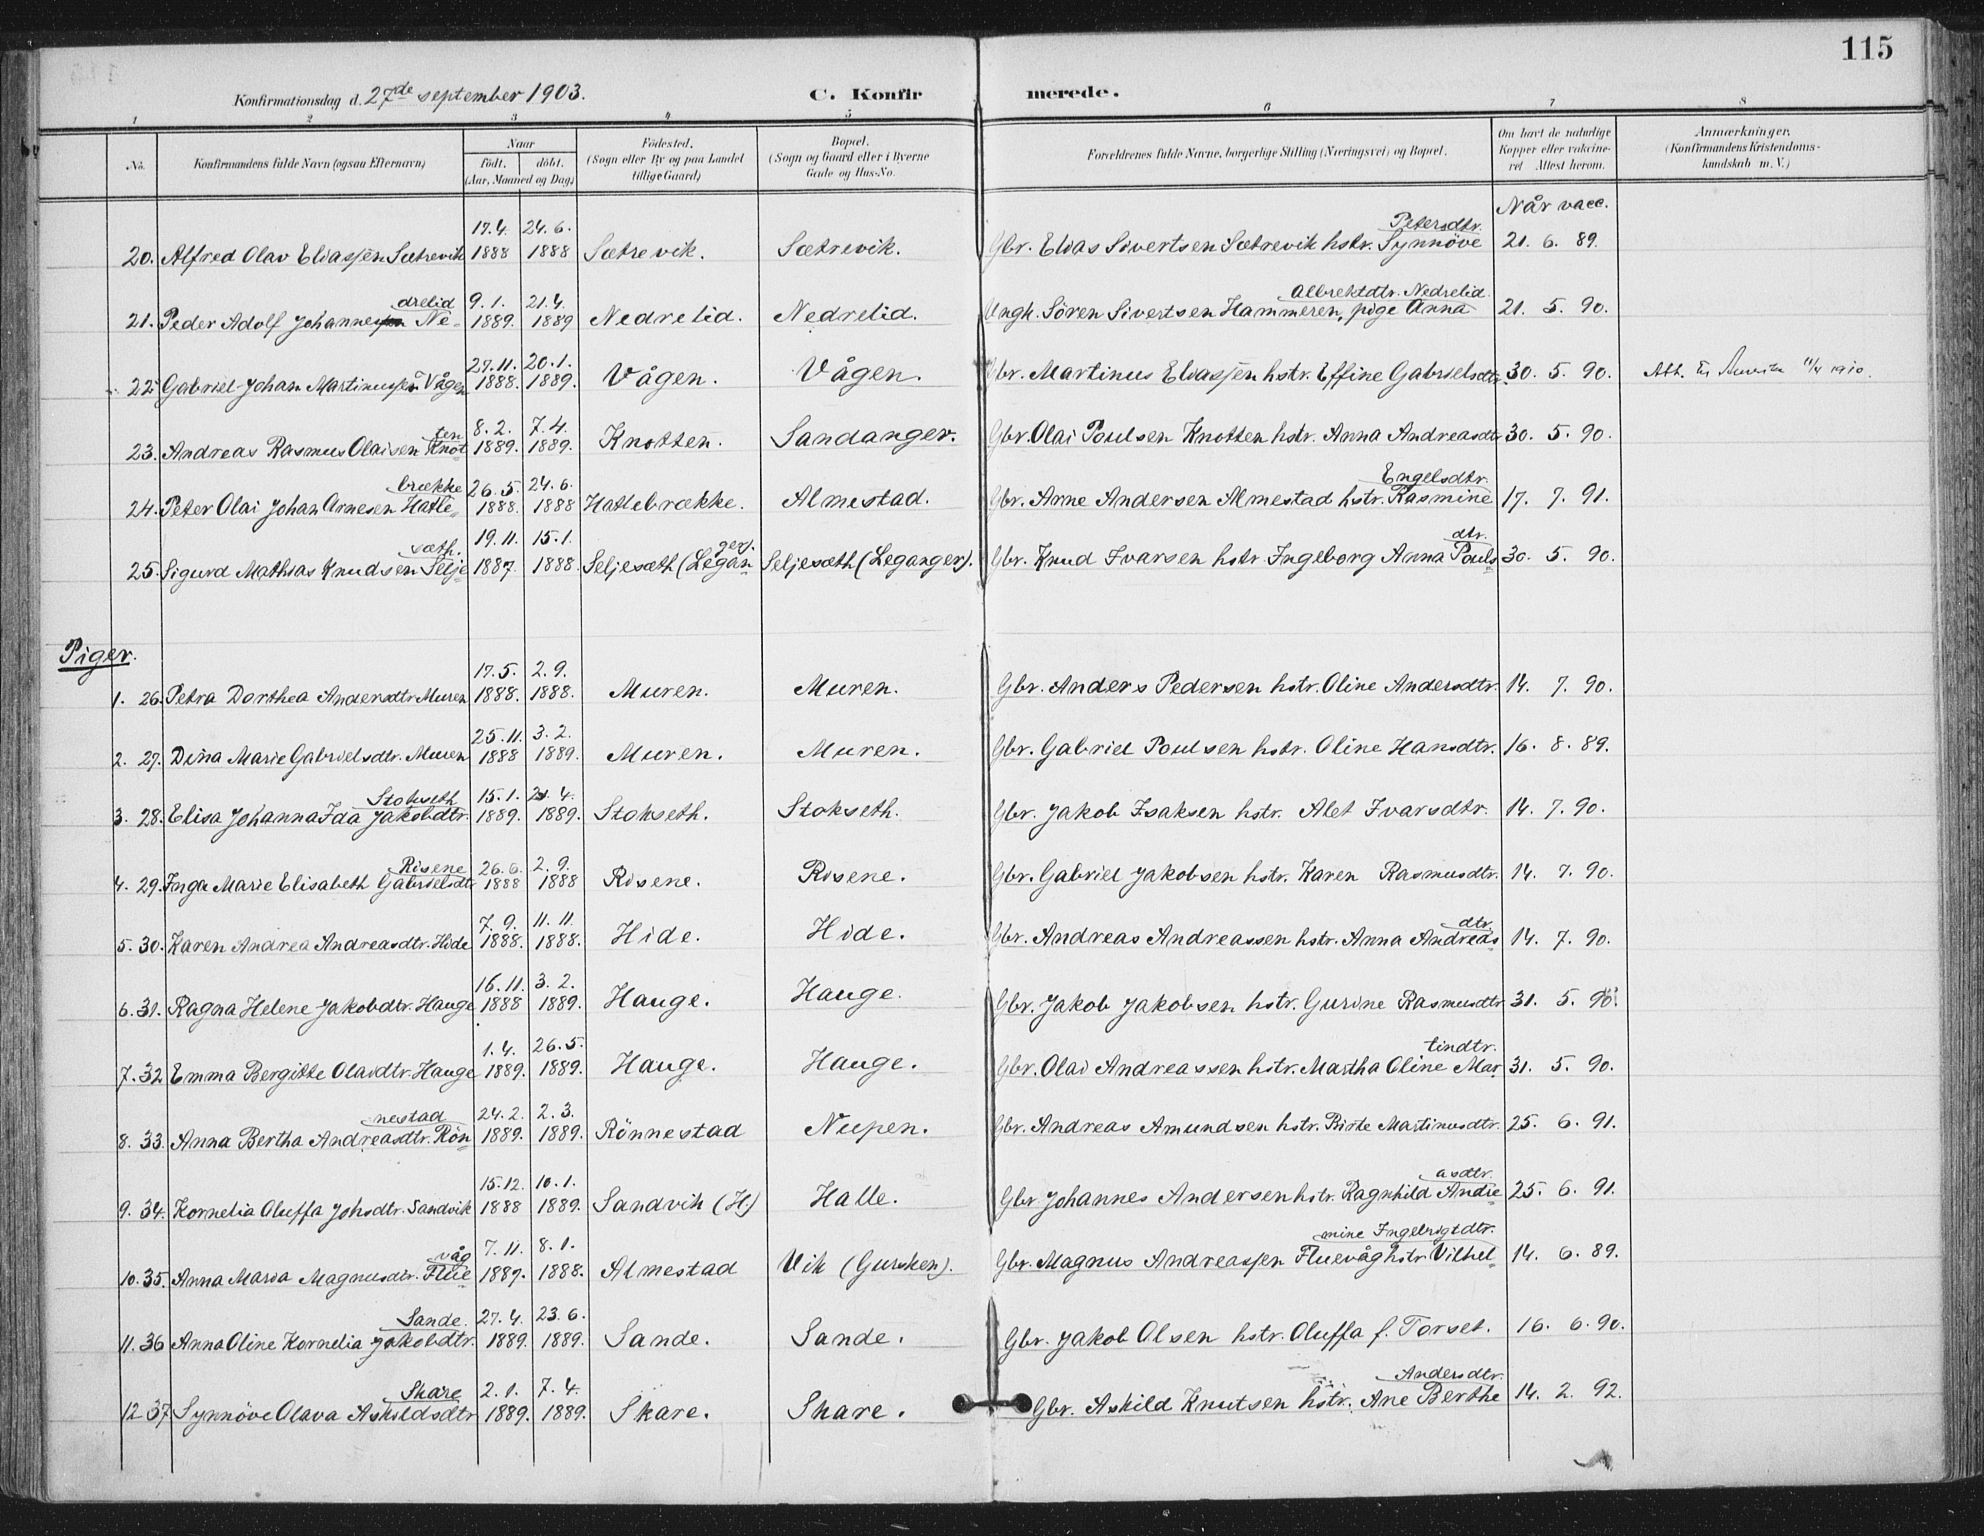 115
Konfirmationsdag d. 27de september 1903.
C. Konfirmerede.
1 2 3 4 5 6 7 8
No. Konfirmandens fulde Navn (ogsaa Efternavn) Naar født. døbt. (Aar, Maaned og Dag) Fødested. (Sogn eller By og paa Landet tillige Gaard) Bopæl. (Sogn og Gaard eller i Byerne Gade og Hus-No. Forældrenes fulde Navne, borgerlige Stilling (Næringsvei) og Bopæl. Om havt de naturlige Kopper eller vaccineret Attest herom. Anmærkninger. (Konfirmandens Kristendomskundskab m. V.)
Når vacc.
20. Alfred Olav Eliassen Sætrevik 17.4. 1888 24.6. 1888 Sætrevik. Sætrevik. Gbr. Elias Sivertsen Sætrevik hstr. Synnöve Petersdtr. 21. 6. 89.
21. Peder Adolf Johannessen Nedrelid 9.1. 1889. 21.4. 1889 Nedrelid. Nedrelid. Ungk. Sören Sivertsen Hammeren, pige Anna Albrektdtr. Nedrelid. 21. 5. 90.
22. Gabriel Johan Martinussen Vågen 27.11. 1888. 20.1. 1889. Vågen. Vågen. Gbr. Martinus Eliassen hstr. Effine Gabrielsdtr. 30. 5. 90. Att. til Amerika 11/4 1910.
23. Andreas Rasmus Olaisen Knotten 8.2. 1889. 7.4. 1889. Knotten. Sandanger. Gbr. Olai Poulsen Knotten hstr. Anna Andreasdtr 30. 5. 90.
24. Peter Olai Johan Arnesen Hatlebrække 26.5. 1888. 24.6. 1888 Hatlebrække. Almestad. Gbr. Arne Andersen Almestad hstr. Rasmine Engelsdtr. 17. 7. 91.
25. Sigurd Mathias Knudsen Seljesæth. 19.11. 1887. 15.1. 1888. Seljesæth (Leganger). Seljesæth (Leganger). Gbr. Knud Ivarsen hstr Ingeborg Anna Poulsdtr. 30. 5. 90.
Piger.
1. 26. Petra Dorthea Andersdtr Muren 17.5. 1888. 2.9. 1888. Muren. Muren. Gbr. Anders Pedersen hstr. Oline Andersdtr. 14. 7. 90.
2. 27. Dina Marie Gabrielsdtr. Muren 25.11. 1888 3.2. 1889. Muren. Muren. Gbr. Gabriel Poulsen hstr. Oline Hansdtr. 16. 8. 89.
3. 28. Elisa Johanna Ida Jakobdtr. Stokseth 15.1. 1889. 21.4. 1889. Stokseth. Stokseth. Gbr. Jakob Isaksen hstr. Alet Ivarsdtr. 14. 7. 90.
4. 29. Inga Marie Elisabeth Gabrielsdtr Risene 26.6. 1888 2.9. 1888 Risene. Risene. Gbr. Gabriel Jakobsen hstr. Karen Rasmusdtr. 14. 7. 90.
5. 30. Karen Andrea Andreasdtr. Hide 7.9. 1888. 11.11. 1888. Hide. Hide. Gbr. Andreas Andreassen hstr. Anna Andreasdtr. 14. 7. 90.
6. 31. Ragna Helene Jakobdtr. Hauge 16.11. 1888 3.2. 1889. Hauge. Hauge. Gbr. Jakob Jakobsen hstr. Gurine Rasmusdtr 31. 5. 90.
7. 32 Emma Bergitte Olaidtr. Hauge 1.4. 1889. 26.5. 1889. Hauge. Hauge. Gbr. Olai Andreassen hstr. Martha Oline Martindtr. 31. 5. 90.
8. 33. Anna Bertha Andreasdtr. Rönnestad 24.2. 1889. 2.3. 1889. Rönnestad Nupen. Gbr. Andreas Amundsen hstr. Birte Martinusdtr. 25. 6. 91.
9. 34. Kornelia Oluffa Johsdtr. Sandvik 15.12. 1888 10.1. 1889. Sandvik (H) Halle. Gbr Johannes Andersen hstr. Ragnhild Andreasdtr. 25. 6. 91.
10. 35. Anna Maria Magnusdtr. Fluevåg 7.11. 1887. 8.1. 1888. Almestad Vik (Gursken). Gbr. Magnus Andreassen Fluevåg hstr Vilhelmine Ingebrigtdtr. 14. 6. 89.
11. 36 Anna Oline Kornelia Jakobdtr. Sande. 27.4. 1889. 23.6. 1889. Sande. Sande. Gbr. Jakob Olsen hstr. Oluffa f. Torset. 16. 6. 90.
12 37 Synnöve Olava Askildsdtr Skare 2.1. 1889. 7.4. 1889. Skare. Skare. Gbr. Askild Knutsen hstr. Ane Berthe Andersdtr. 14. 2. 92.